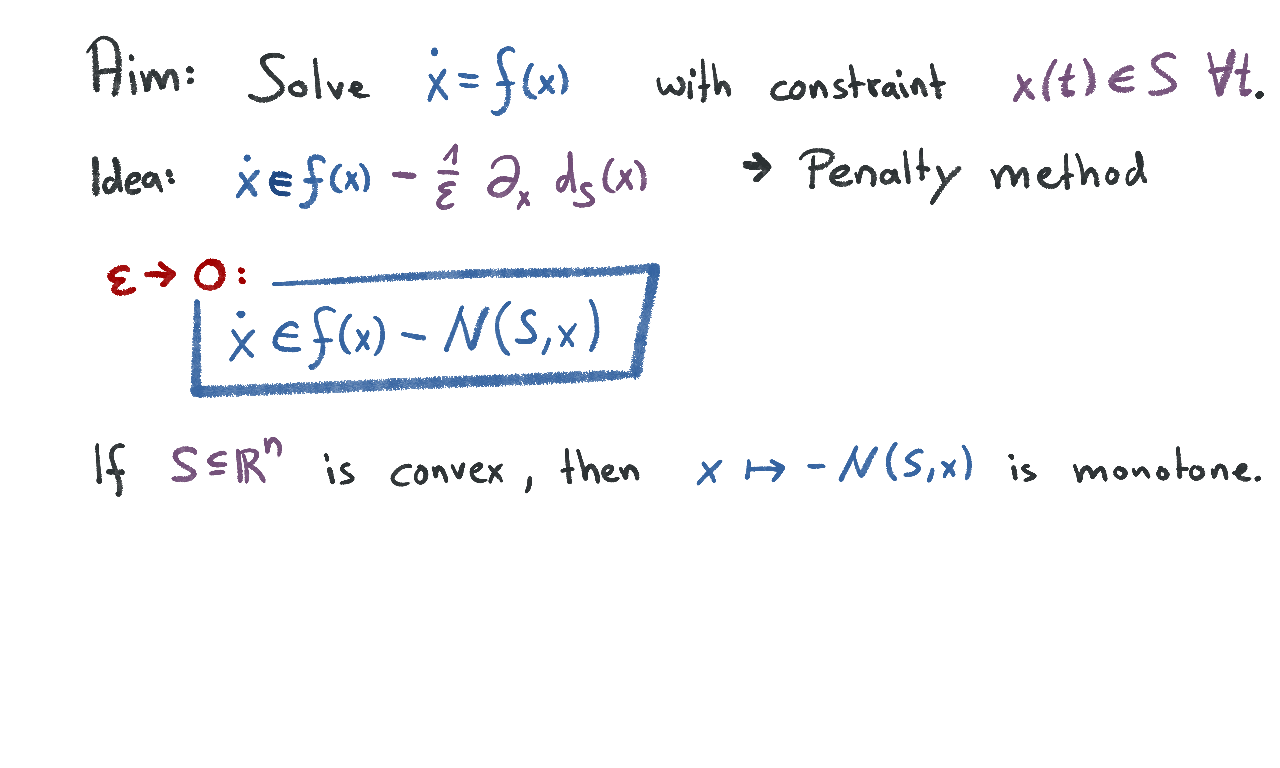 Aim: Solve ẋ = f(x) with constraint x(t) ∈ S ∀t.
Idea: ẋ ∈ f(x) - 1/ε ∂ₓ d_S(x) → Penalty method
ε → 0:
ẋ ∈ f(x) - N(S,x)
If S ⊆ ℝⁿ is convex, then x ↦ -N(S,x) is monotone.